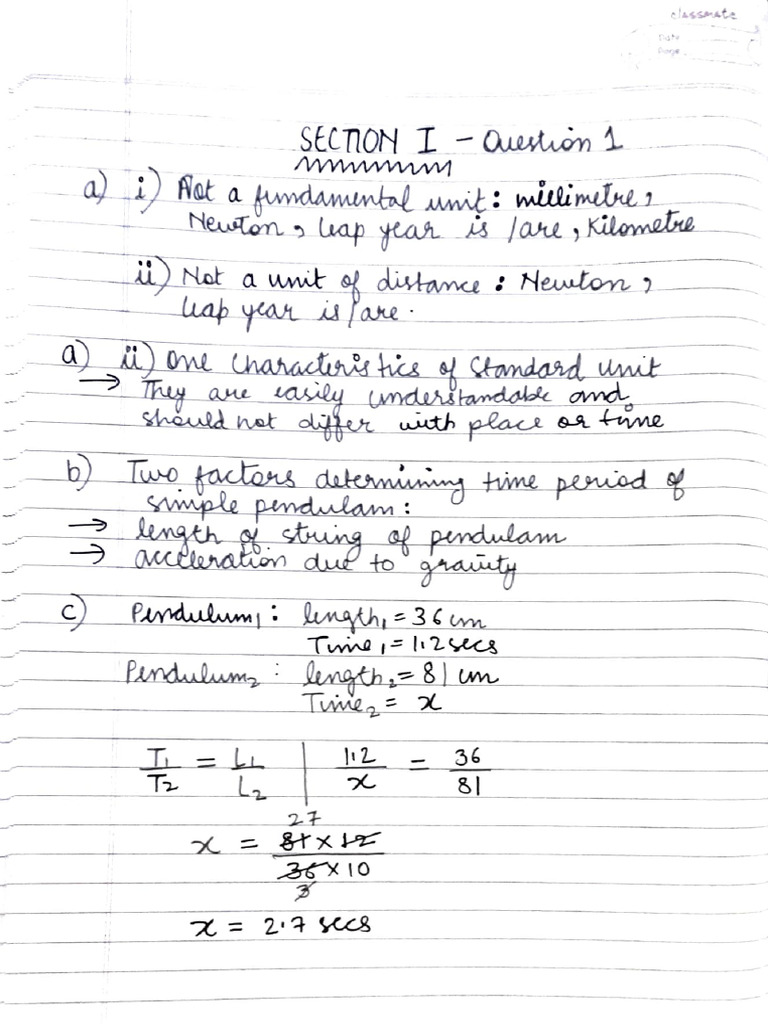 classmate
Date
Page
SECTION I - Question 1
a) i) Not a fundamental unit: millimetre,
Newton, leap year is /are, Kilometre
ii) Not a unit of distance: Newton,
leap year is/are.
a) ii) One Characteristics of Standard Unit
→ They are easily understandable and
should not differ with place or time
b) Two factors determining time period of
simple pendulam:
→ length of string of pendulam
→ acceleration due to gravity
c) Pendulum₁: length₁ = 36 cm
Time₁ = 1.2 secs
Pendulum₂: length₂ = 81 cm
Time₂ = x
T₁/T₂ = L₁/L₂ | 1.2/x = 36/81
27
x = 81 × 12 / 36 × 10
3
x = 2.7 secs